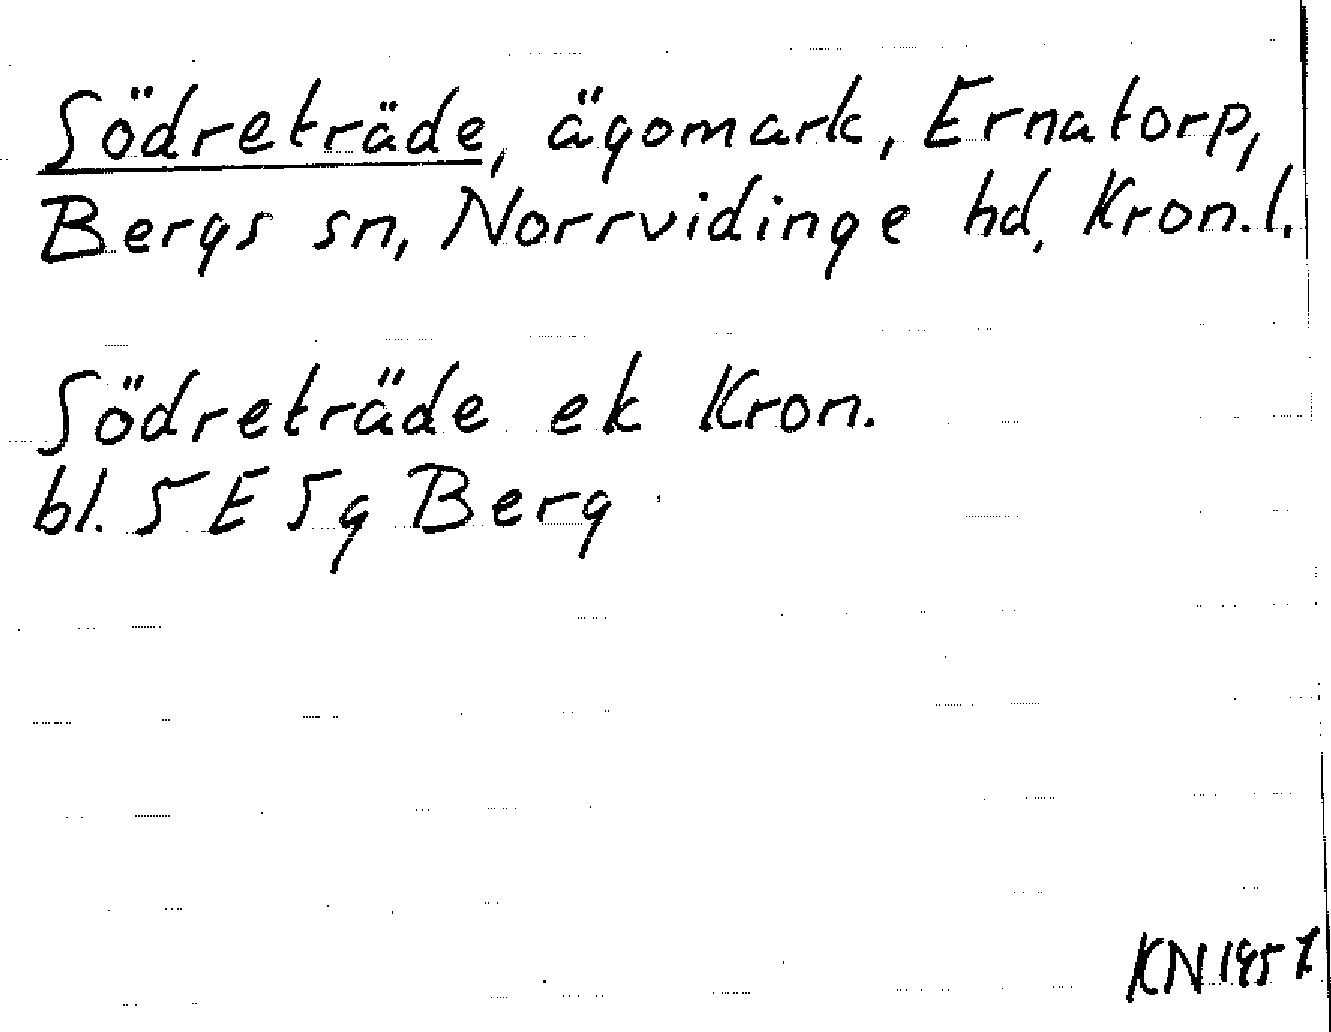 Södreträde, ägomark, Ernatorp,
Bergs sn, Norrvidinge hd, Kron.l.
Södreträde ek Kron.
bl. 5 E 5g Berg
KN 1957